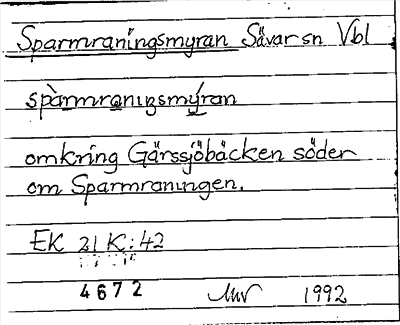 Sparmraningsmyran Sävar sn Vbl
spàmmraniŋsmýran
omkring Gärssjöbäcken söder
om Sparmraningen.
EK 21 K:42
4672 1992